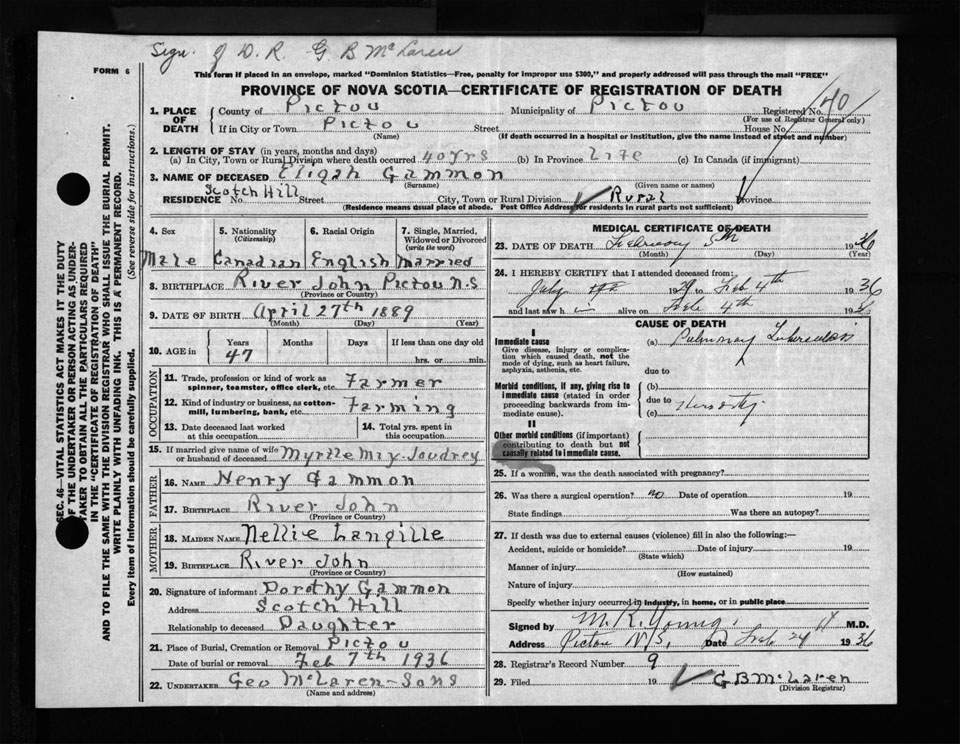 Sign. of D. R. G B McLaren
FORM 6
This form if placed in an envelope, marked "Dominion Statistics—Free, penalty for improper use $300," and properly addressed will pass through the mail "FREE"
PROVINCE OF NOVA SCOTIA—CERTIFICATE OF REGISTRATION OF DEATH
1. PLACE OF DEATH County of Pictou Municipality of Pictou Registered No. 40
(For use of Registrar General only)
If in City or Town Pictou Street House No.
(Name) (If death occurred in a hospital or institution, give the name instead of street and number)
2. LENGTH OF STAY (in years, months and days)
(a) In City, Town or Rural Division where death occurred 40 yrs (b) In Province Life (c) In Canada (if immigrant)
3. NAME OF DECEASED Eligah Gammon
(Surname) (Given name or names)
RESIDENCE No. Scotch Hill Street City, Town or Rural Division Rural Province
(Residence means usual place of abode. Post Office Address for residents in rural parts not sufficient)
4. Sex 5. Nationality (Citizenship) 6. Racial Origin 7. Single, Married, Widowed or Divorced (write the word)
Male Canadian English Married
8. BIRTHPLACE River John Pictou N.S
(Province or Country)
9. DATE OF BIRTH April 27th 1889
(Month) (Day) (Year)
10. AGE in Years Months Days If less than one day old
47 hrs. or min.
OCCUPATION
11. Trade, profession or kind of work as spinner, teamster, office clerk, etc. Farmer
12. Kind of industry or business, as cotton-mill, lumbering, bank, etc. Farming
13. Date deceased last worked at this occupation 14. Total yrs. spent in this occupation
15. If married give name of wife or husband of deceased Myrtle May Joudrey
FATHER
16. NAME Henry Gammon
17. BIRTHPLACE River John
(Province or Country)
MOTHER
18. MAIDEN NAME Nellie Langille
19. BIRTHPLACE River John
(Province or Country)
20. Signature of informant Dorothy Gammon
Address Scotch Hill
Relationship to deceased Daughter
21. Place of Burial, Cremation or Removal Pictou
Date of burial or removal Feb 7th 1936
22. UNDERTAKER Geo McLaren-Sons
(Name and address)
MEDICAL CERTIFICATE OF DEATH
23. DATE OF DEATH February 5th 1936
(Month) (Day) (Year)
24. I HEREBY CERTIFY that I attended deceased from:
July 1929 to Feb 4th 1936
and last saw h im alive on Feb 4th 193
CAUSE OF DEATH
I
Immediate cause (a) Pulmonary Tuberculosis
Give disease, injury or complication which caused death, not the mode of dying, such as heart failure, asphyxia, asthenia, etc.
due to
Morbid conditions, if any, giving rise to immediate cause (stated in order proceeding backwards from immediate cause).
(b)
due to
(c)
II
Other morbid conditions (if important) contributing to death but not causally related to immediate cause.
25. If a woman, was the death associated with pregnancy?
26. Was there a surgical operation? no Date of operation 19
State findings Was there an autopsy?
27. If death was due to external causes (violence) fill in also the following:—
Accident, suicide or homicide? Date of injury 19
(State which)
Manner of injury
(How sustained)
Nature of injury
Specify whether injury occurred in industry, in home, or in public place
Signed by M. R. Young M.D.
Address Pictou N.S. Date Feb 24 1936
28. Registrar's Record Number 9
29. Filed 19 G B McLaren
(Division Registrar)
SEC. 46—VITAL STATISTICS ACT MAKES IT THE DUTY
OF THE UNDERTAKER OR PERSON ACTING AS UNDER-
TAKER TO OBTAIN ALL THE PARTICULARS REQUIRED
IN THE "CERTIFICATE OF REGISTRATION OF DEATH"
AND TO FILE THE SAME WITH THE DIVISION REGISTRAR WHO SHALL ISSUE THE BURIAL PERMIT.
WRITE PLAINLY WITH UNFADING INK. THIS IS A PERMANENT RECORD.
Every item of Information should be carefully supplied. (See reverse side for instructions.)